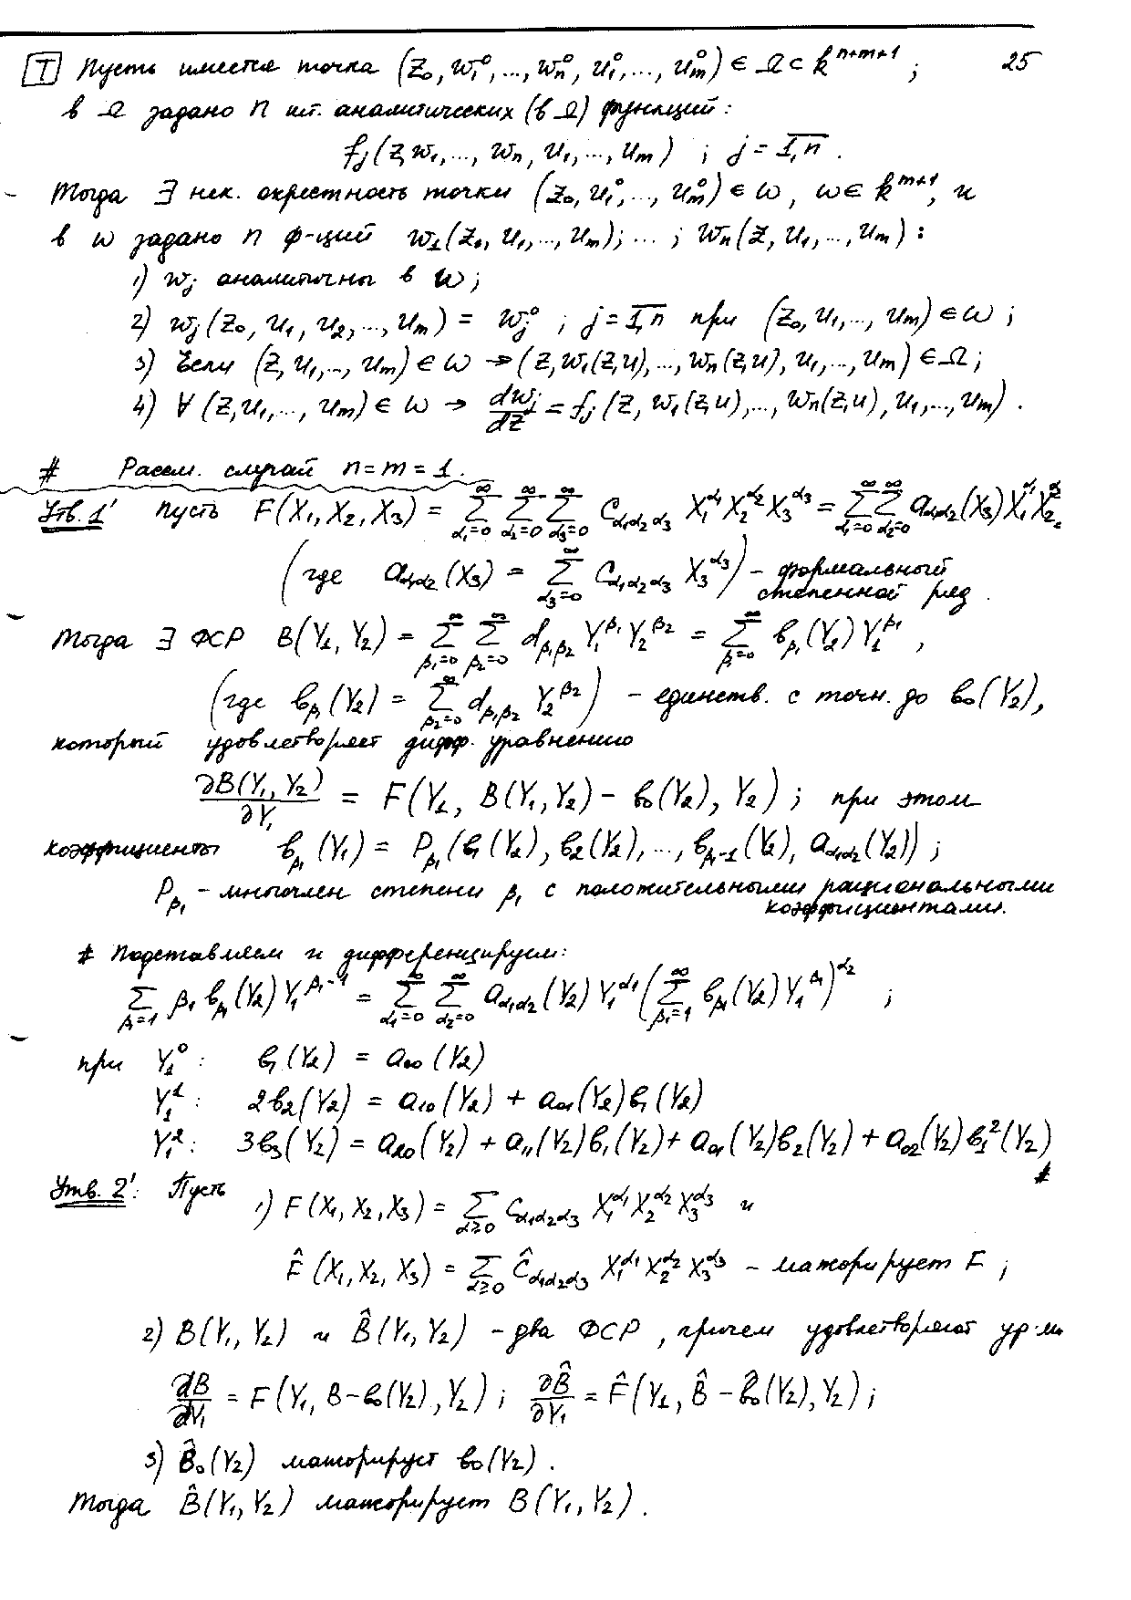 25
[T] Пусть имеется точка (z₀, w₁⁰, ..., wₙ⁰, u₁⁰, ..., uₘ⁰) ∈ Ω ⊂ kⁿ⁺ᵐ⁺¹ ;
в Ω задано n шт. аналитических (в Ω) функций:
fⱼ(z, w₁, ..., wₙ, u₁, ..., uₘ) ; j = \overline{1,n} .
Тогда ∃ нек. окрестность точки (z₀, u₁⁰, ..., uₘ⁰) ∈ ω, ω ∈ kᵐ⁺¹, и
в ω задано n ф-ций w₁(z₀, u₁, ..., uₘ); ... ; wₙ(z, u₁, ..., uₘ) :
1) wⱼ аналитичны в ω ;
2) wⱼ(z₀, u₁, u₂, ..., uₘ) = wⱼ⁰ ; j = \overline{1,n} при (z₀, u₁, ..., uₘ) ∈ ω ;
3) Если (z, u₁, ..., uₘ) ∈ ω → (z, w₁(z,u), ..., wₙ(z,u), u₁, ..., uₘ) ∈ Ω ;
4) ∀ (z, u₁, ..., uₘ) ∈ ω → \frac{dwⱼ}{dz} = fⱼ(z, w₁(z,u), ..., wₙ(z,u), u₁, ..., uₘ) .
# Рассм. случай n = m = 1.
Утв. 1' Пусть F(X₁, X₂, X₃) = \sum_{α₁=0}^{∞} \sum_{α₂=0}^{∞} \sum_{α₃=0}^{∞} C_{α₁α₂α₃} X₁^{α₁} X₂^{α₂} X₃^{α₃} = \sum_{α₁=0}^{∞} \sum_{α₂=0}^{∞} a_{α₁α₂}(X₃) X₁^{α₁} X₂^{α₂}
(где a_{α₁α₂}(X₃) = \sum_{α₃=0}^{∞} C_{α₁α₂α₃} X₃^{α₃}) – формальный
степенной ряд .
Тогда ∃ ФСР B(Y₁, Y₂) = \sum_{β₁=0}^{∞} \sum_{β₂=0}^{∞} d_{β₁β₂} Y₁^{β₁} Y₂^{β₂} = \sum_{β₁=0}^{∞} b_{β₁}(Y₂) Y₁^{β₁} ,
(где b_{β₁}(Y₂) = \sum_{β₂=0}^{∞} d_{β₁β₂} Y₂^{β₂}) – единств. с точн. до b₀(Y₂),
который удовлетворяет дифф. уравнению
\frac{∂B(Y₁, Y₂)}{∂Y₁} = F(Y₁, B(Y₁, Y₂) – b₀(Y₂), Y₂) ; при этом
коэффициенты b_{β₁}(Y₁) = P_{β₁}(b₁(Y₂), b₂(Y₂), ..., b_{β₁-1}(Y₂), a_{α₁α₂}(Y₂)) ;
P_{β₁} – многочлен степени β₁ с положительными рациональными
коэффициентами.
# Подставляем и дифференцируем:
\sum_{β₁=1}^{∞} β₁ b_{β₁}(Y₂) Y₁^{β₁-1} = \sum_{α₁=0}^{∞} \sum_{α₂=0}^{∞} a_{α₁α₂}(Y₂) Y₁^{α₁} (\sum_{β₁=1}^{∞} b_{β₁}(Y₂) Y₁^{β₁})^{α₂} ;
при Y₁⁰ : b₁(Y₂) = a₀₀(Y₂)
Y₁¹ : 2b₂(Y₂) = a₁₀(Y₂) + a₀₁(Y₂) b₁(Y₂)
Y₁² : 3b₃(Y₂) = a₂₀(Y₂) + a₁₁(Y₂) b₁(Y₂) + a₀₁(Y₂) b₂(Y₂) + a₀₂(Y₂) b₁²(Y₂)
#
Утв. 2' : Пусть 1) F(X₁, X₂, X₃) = \sum_{α≥0} C_{α₁α₂α₃} X₁^{α₁} X₂^{α₂} X₃^{α₃} и
F̂(X₁, X₂, X₃) = \sum_{α≥0} Ĉ_{α₁α₂α₃} X₁^{α₁} X₂^{α₂} X₃^{α₃} – мажорирует F ;
2) B(Y₁, Y₂) и B̂(Y₁, Y₂) – два ФСР, причем удовлетворяют ур-ям
\frac{∂B}{∂Y₁} = F(Y₁, B – b₀(Y₂), Y₂) ; \frac{∂B̂}{∂Y₁} = F̂(Y₁, B̂ – b̂₀(Y₂), Y₂) ;
3) B̂₀(Y₂) мажорирует b₀(Y₂) .
Тогда B̂(Y₁, Y₂) мажорирует B(Y₁, Y₂) .